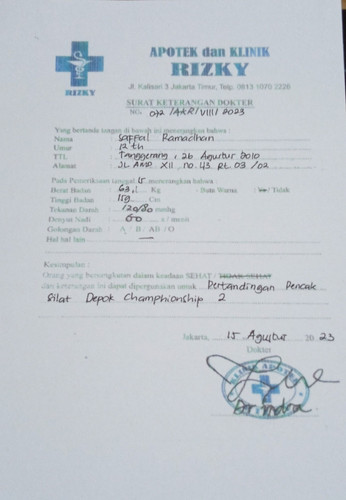 APOTEK dan KLINIK
RIZKY
RIZKY
Jl. Kalisari 3 Jakarta Timur, Telp. 0813 1070 3226
SURAT KETERANGAN DOKTER
NO. 072 /AKR/VIII/2023
Yang bertanda tangan di bawah ini menerangkan bahwa :
Nama : Saffal Ramadhan
Umur : 12 th
TTL : Tanggerang, 26 Agustus 2010
Alamat : JL. AMD XII, no. 43 Rt. 03 /02
Pada Pemeriksaan tanggal 15 menerangkan bahwa :
Berat Badan : 63,1 Kg - Buta Warna : Ya / Tidak
Tinggi Badan : 159 Cm
Tekanan Darah : 120/80 mmhg
Denyut Nadi : 80 x / menit
Golongan Darah : A / B / AB / O
Hal hal lain : —
Kesimpulan :
Orang yang bersangkutan dalam keadaan SEHAT / TIDAK SEHAT
dan keterangan ini dapat dipergunakan untuk Pertandingan Pencak
Silat Depok Champhionship 2
Jakarta, 15 Agustus 20 23
Dokter
KLINIK APOTEK
Dr. Indra